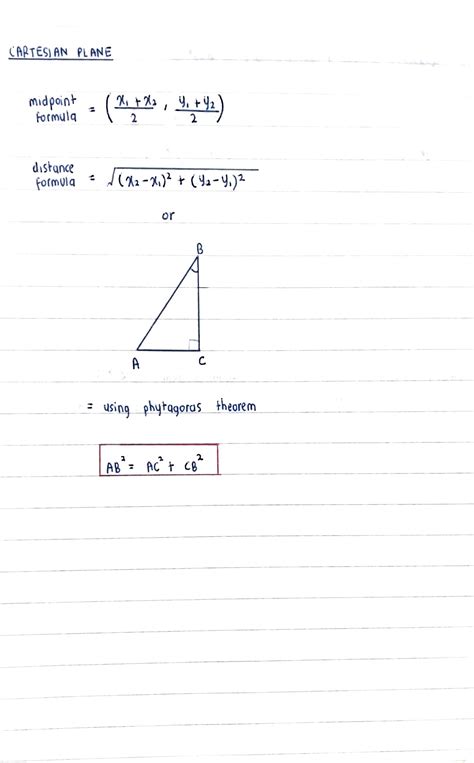 CARTESIAN PLANE
midpoint formula = (x₁ + x₂ / 2 , y₁ + y₂ / 2)
distance formula = √(x₂ - x₁)² + (y₂ - y₁)²
or
B
A C
= using phytagoras theorem
AB² = AC² + CB²